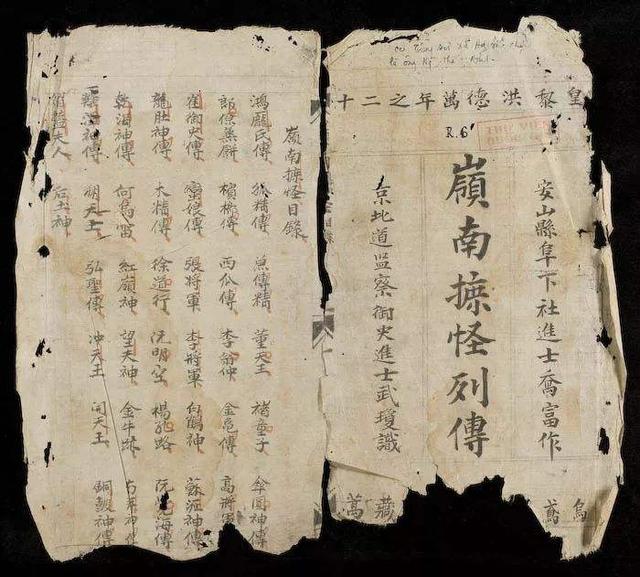 皇黎洪德萬年之二十
R.6
安山縣阜下社進士喬富作
嶺南摭怪列傳
京北道監察御史進士武瓊識
烏鳶
藏
嶺南摭怪目錄
鴻龐氏傳 狐精傳 魚傳精 董天王 褚童子 傘圓神傳
郎僚蒸餅 檳榔傳 西瓜傳 李翁仲 金龜傳 高將軍
崔御史傳 蠻娘傳 張將軍 李將軍 白鶴神 蘇瀝神傳
龍肚神傳 木精傳 徐道行 阮明空 楊孔路 阮海傳
乾海神傳 何烏雷 紅嶺神 望夫神 金牛跡 神傳
海神傳 朔天王 弘聖傳 冲天王 開天王 銅鼓神傳
大人 后土神